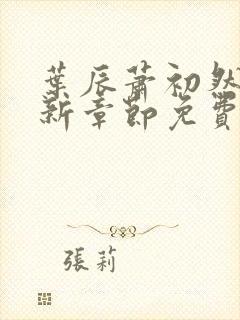 葉辰蕭初然
新章節免費
張莉